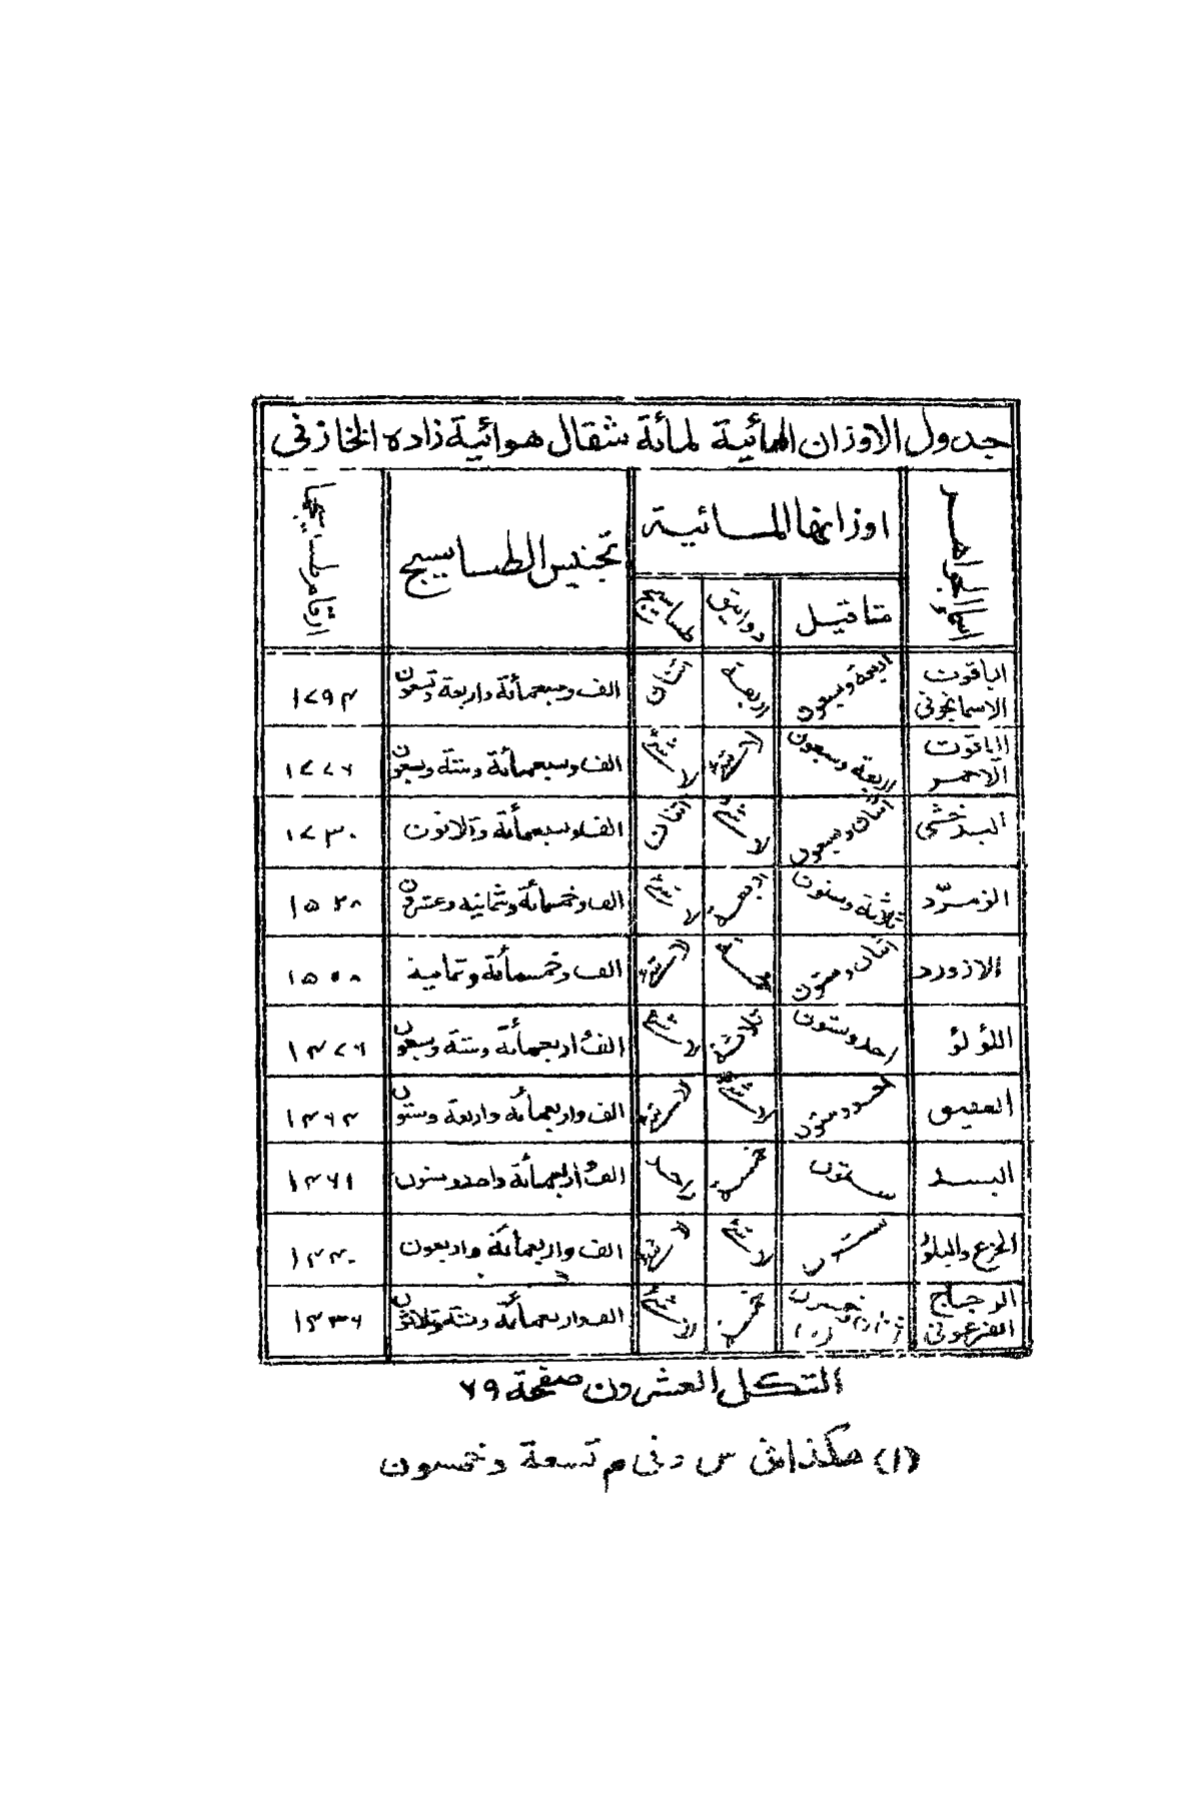 جدول الاوزان المائية لمائة مثقال هوائية زاده الخازنى
اسماء الجواهر
اوزانها المائية
مثاقيل
دوانيق
طساسيج
تجنيس الطساسيج
ارقام طساسيجها
الياقوت الاسمانجونى
اربعة وسبعون
اربعة
اثنان
الف وسبعمأئة واربعة وتسعون
١٧٩٤
الياقوت الاحمر
اربعة وسبعون
لا شئ
لا شئ
الف وسبعمأئة وستة وسبعون
١٧٧٦
البدخشى
اثنان وسبعون
لا شئ
اثنان
الف وسبعمأئة وثلاثون
١٧٣٠
الزمرّد
ثلاثة وستون
اربعة
لا شئ
الف وخمسمأئة وثمانية وعشرون
١٥٢٨
الازورد
اثنان وستون
خمسة
لا شئ
الف وخمسمأئة وثمانية
١٥٠٨
اللؤلؤ
احد وستون
ثلاثة
لا شئ
الف واربعمأئة وستة وسبعون
١٤٧٦
العقيق
احد وستون
لا شئ
لا شئ
الف واربعمأئة واربعة وستون
١٤٦٤
البسد
ستون
خمسة
واحد
الف واربعمأئة واحد وستون
١٤٦١
الجزع والبلور
ستون
لا شئ
لا شئ
الف واربعمأئة واربعون
١٤٤٠
الزجاج الفرعونى
وخمسون (١)
خمسة
لا شئ
الف واربعمأئة وستة وثلاثون
١٤٣٦
الشكل العشرون صفحة ٦٩
(١) هكذا فى س وفى م تسعة وخمسون